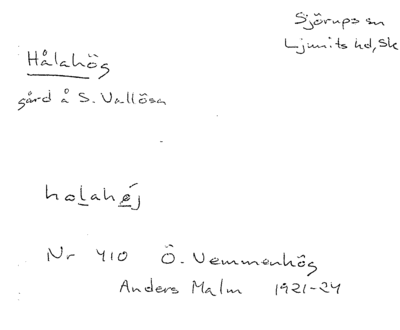 Sjörups sn
Ljunits hd, Sk
Hålahög
gård å S. Vallösa
holahéj
Nr 410 Ö. Vemmenhög
Anders Malm 1921-24